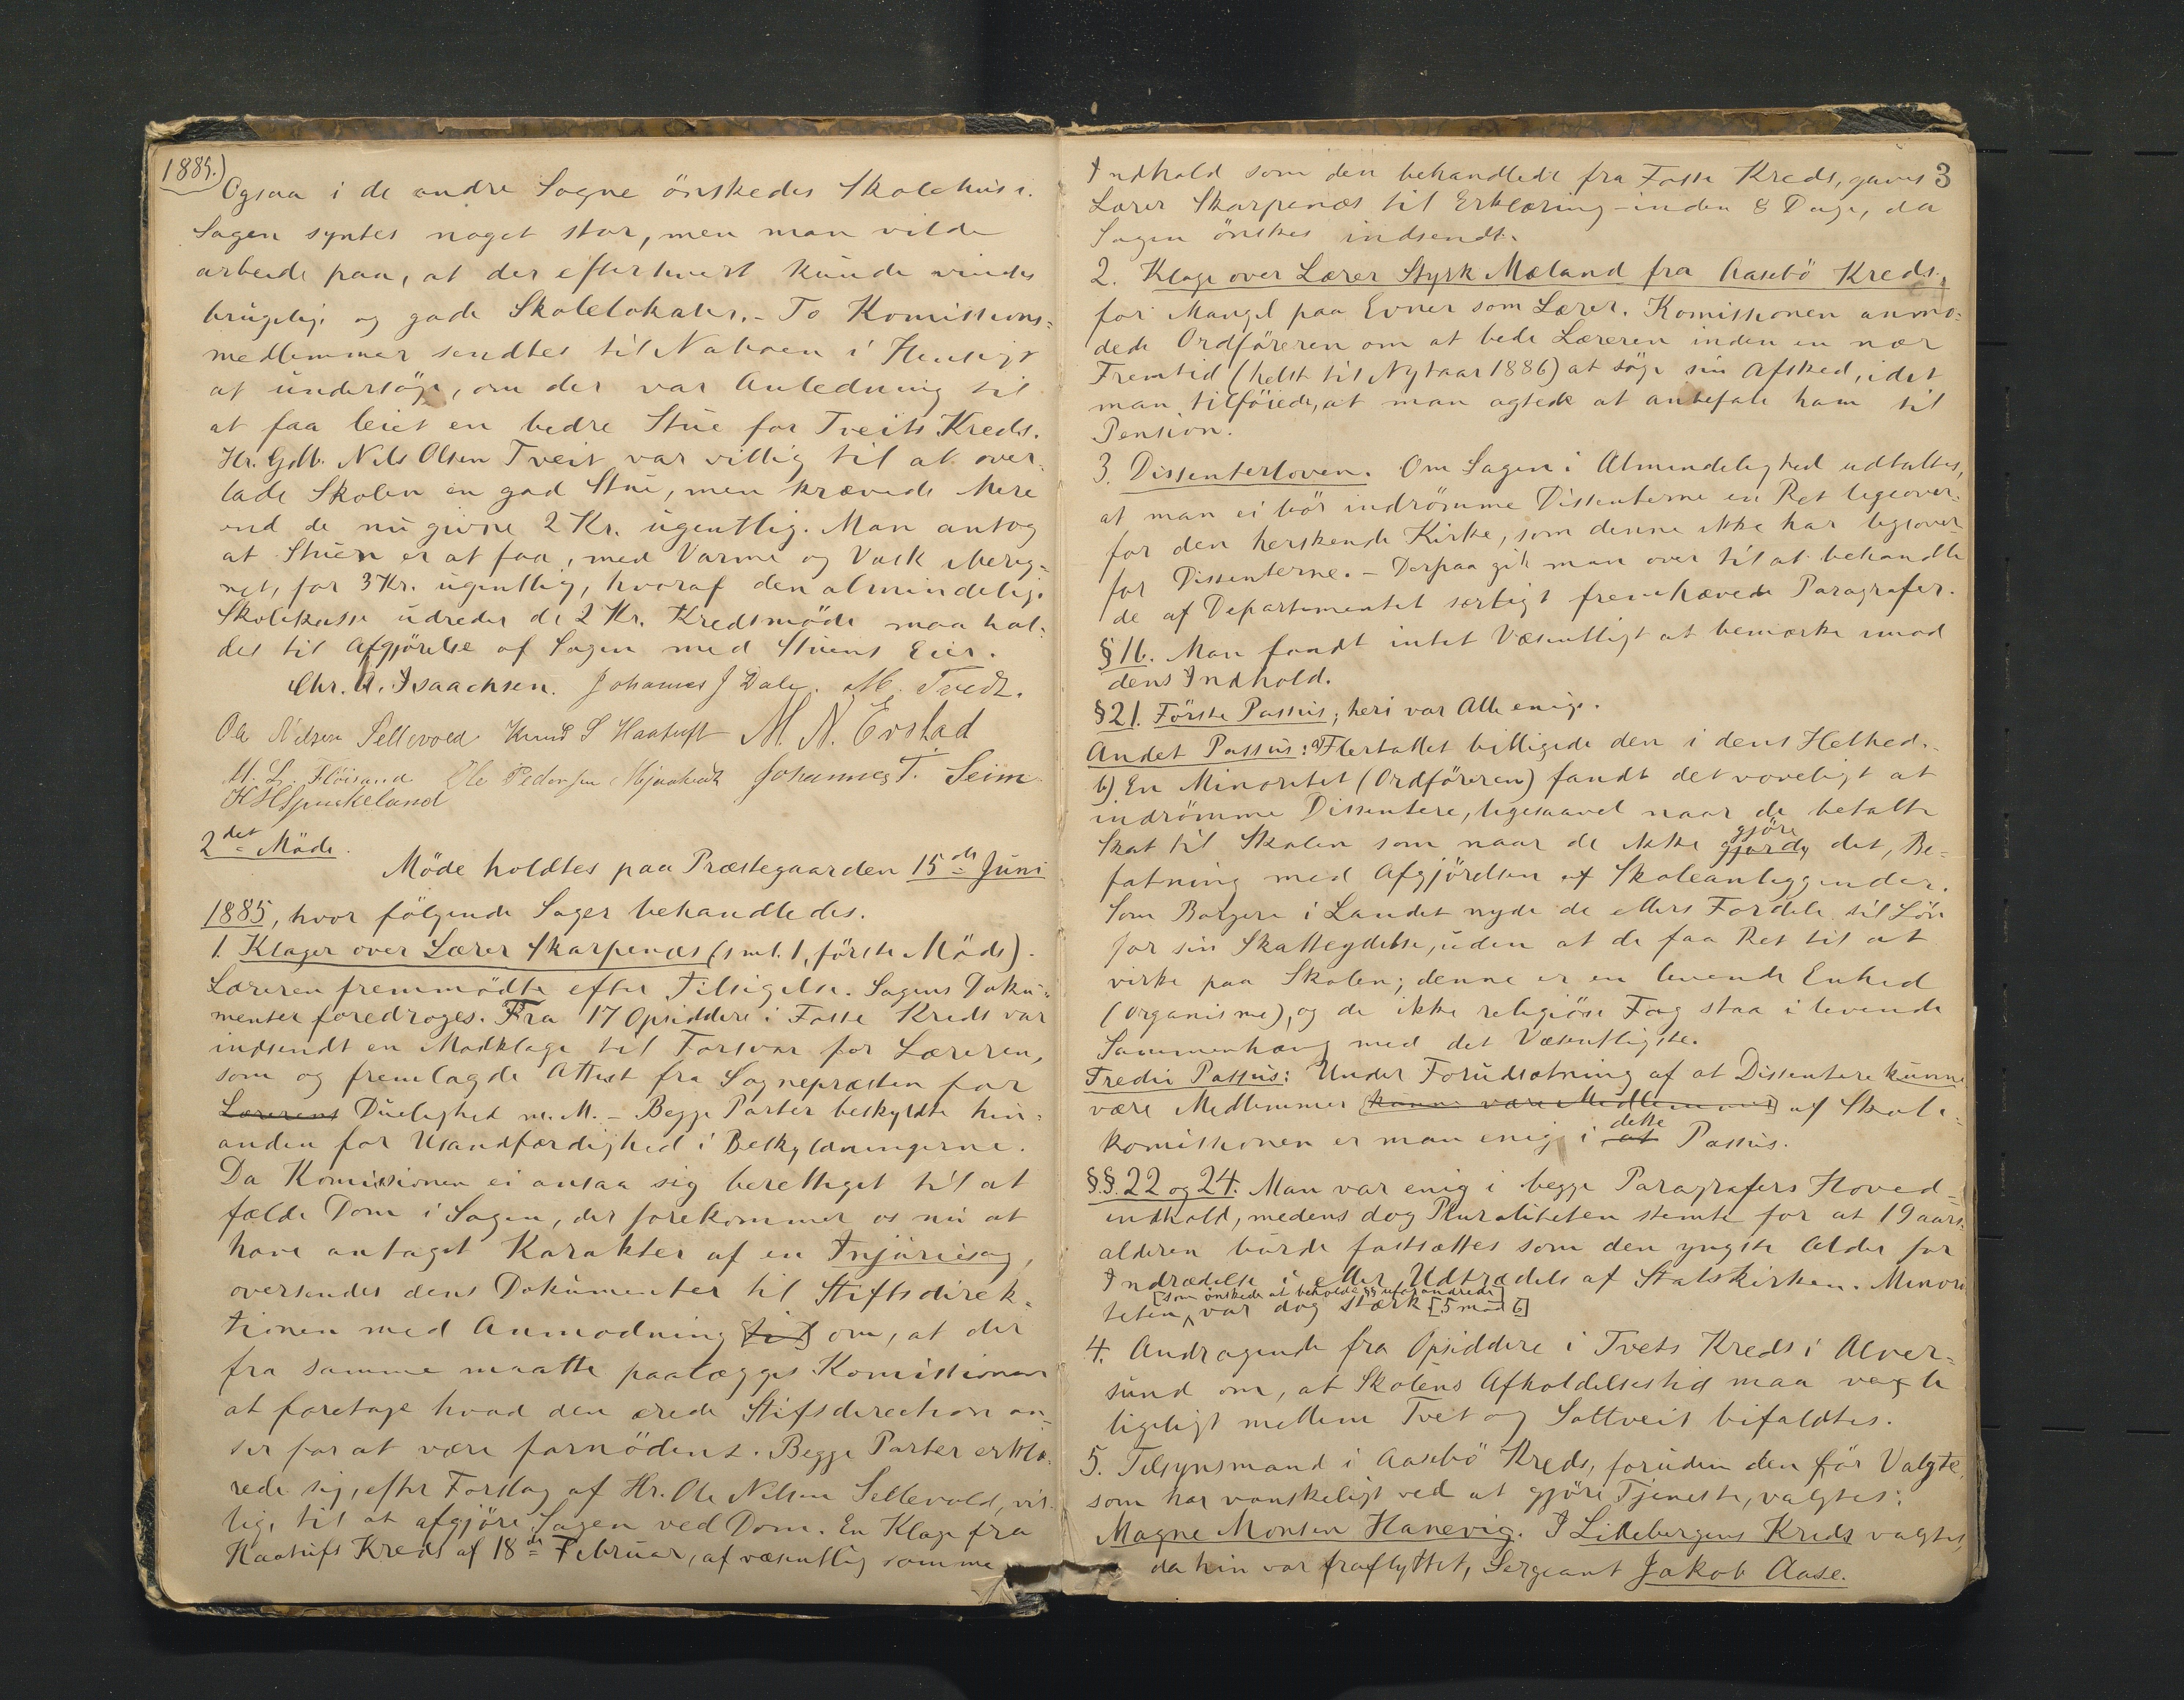 1885.)
Ogsaa i de andre Sogne önskedes Skolehuse.
Sagen syntes noget stor, men man vilde
arbeide paa, at der efterhvert kunde vindes
brugelige og gode Skolelokaler. - To Komissions=
medlemmer sendtes til Naboen i Hensigt
at undersöge, om der var Anledning til
at faa leiet en bedre Stue for Tveits Kreds.
Hr. Gdb. Nils Olsen Tveit var villig til at over=
lade Skolen en god Stue, men krævede Mere
end de nu givne 2 Kr. ugentlig. Man antog
at Stuen er at faa, med Varme og Vask ibereg=
net, for 3 Kr. ugentlig, hvoraf den almindelige
Skolekasse udreder de 2 Kr. Kredsmöde maa hol=
des til Afgjörelse af Sagen med Stuens Eier.
Chr. A. Isaachsen. Johannes J Dale. M. Tvedt.
Ole Nilsen Sellevold Knud S Haatuft M. N. Evstad
M. L. Flöisand Ole Pedersen Mjaatvedt Johannes T. Seim
K H Spurkeland
2det Möde.
Möde holdtes paa Præstegaarden 15de Juni
1885, hvor fölgende Sager behandledes.
1. Klager over Lærer Skarpenæs (sml. 1, förste Möde).
Læreren fremmödte efter Tilsigelse. Sagens Doku=
menter foredroges. Fra 17 Opsiddere i Fosse Kreds var
indsendt en Modklage til Forsvar for Læreren,
som og fremlagde Attest fra Sognepræsten for
Lærerens Duelighed m. M. - Begge Parter beskyldte hin=
anden for Usandfærdighed i Beskyldningerne.
Da Komissionen ei ansaa sig berettiget til at
fælde Dom i Sagen, der forekommer os nu at
have antaget Karakter af en Injuriesag,
oversendes dens Dokumenter til Stiftsdirek=
tionen med Anmodning [til] om, at der
fra samme maatte paalægges Komissionen
at foretage hvad den ærede Stifsdirection an=
ser for at være fornödent. Begge Parter erklæ=
rede sig, efter Forslag af Hr. Ole Nilsen Sellevold, vil=
lige til at afgjöre Sagen ved Dom. En Klage fra
Haatufts Kreds af 18de Februar, af væsentlig samme
3
Indhold som den behandlede fra Fosse Kreds, gaves
Lærer Skarpenæs til Erklæring inden 8 Dage, da
Sagen önskes indsendt.
2. Klage over Lærer Styrk Mæland fra Aasebö Kreds,
for Mangel paa Evner som Lærer. Komissionen anmo=
dede Ordföreren om at bede Læreren inden en nær
Fremtid (helst til Nytaar 1886) at söge sin Afsked, idet
man tilföiede, at man agtede at anbefale ham til
Pension.
3. Dissenterloven. Om Sagen i Almindelighed udtaltes,
at man ei bör indrömme Dissenterne en Ret ligeover=
for den herskende Kirke, som denne ikke har ligeover=
for Dissenterne. - Derpaa gik man over til at behandle
de af Departementet særligt fremhævede Paragrafer.
§ 16. Man fandt intet Væsentligt at bemærke imod
dens Indhold.
§ 21. Förste Passus; heri var Alle enige.
Andet Passus: a) Flertallet billigede den i dens Helhed.
b) En Minoritet (Ordföreren) fandt det voveligt at
indrömme Dissentere, ligesaavel naar de betalte
Skat til Skolen som naar de ikke gjorde gjöre det, Be=
fatning med Afgjörelsen af Skoleanliggender.
Som Borgere i Landet nyde de ellers Fordele til Lön
for sin Skatteydelse, uden at de faa Ret til at
virke paa Skolen; denne er en levende Enhed
(Organisme), og de ikke religiöse Fag staa i levende
Sammenhæng med det Væsentligste.
Tredie Passus: Under Forudsætning af at Dissentere kunne
være Medlemmer [kunne være Medlemmer] af Skole=
komissionen er man enig i at dette Passus.
§§. 22 og 24. Man var enig i begge Paragrafers Hoved=
indhold, medens dog Pluraliteten stemte for at 19 aars=
alderen burde fastsættes som den yngste Alder for
Indrædelse i eller Udtrædelse af Statskirken. Minori
teten [som önskede at beholde §§ uforandrede] var dog stærk [5 mod 6]
4. Andragende fra Opsiddere i Tvets Kreds i Alver=
sund om, at Skolens Afholdelsestid maa vexle
ligeligt mellem Tvet og Soltveit bifaldtes.
5. Tilsynsmand i Aasebö Kreds, foruden den för Valgte,
som har vanskeligt ved at gjöre Tjeneste, valgtes:
Magne Monsen Hanevig. I Lillebergens Kreds valgtes,
da hin var fraflyttet, Sergeant Jakob Aase.